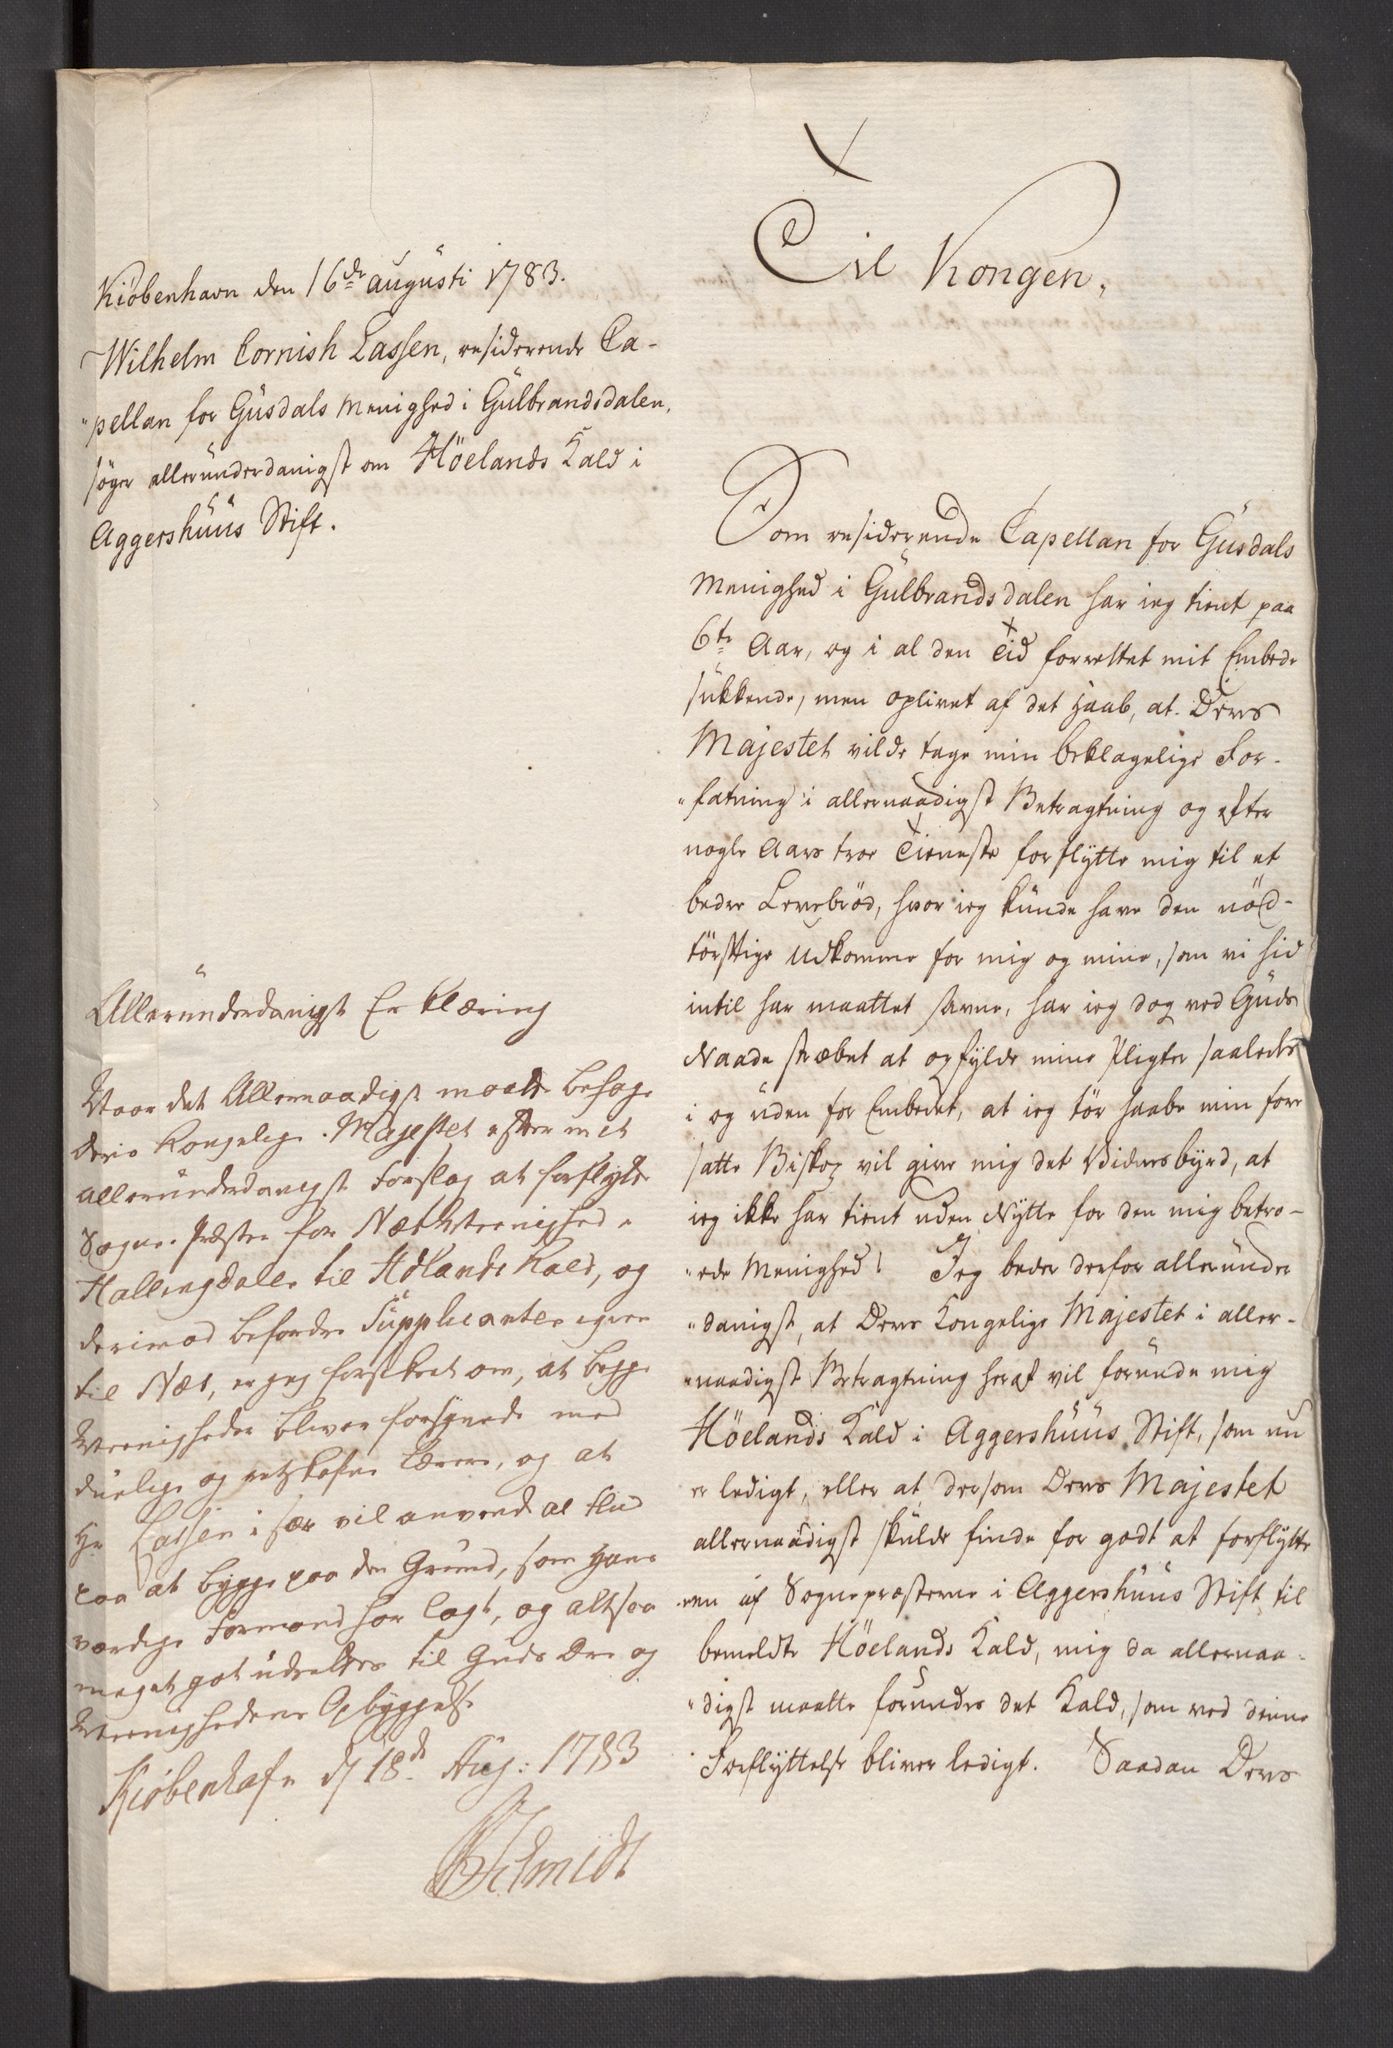 Kiöbenhavn den 16de augusti 1783.
Wilhelm Cornish Lassen, residerende Ca-
"pellan for Gusdals Menighed i Gulbrandsdalen,
söger allerunderdanigst om Höelands Kald i
Aggershuus Stift.
Allerunderdanigst Erklæring
Naar det Allernaadigst maatte behage
Deris Kongelige Majestet efter mit
allerunderdanigst Forslag at forflytte
Sogne-Præsten for Næs Menighed i
Hallingdalen til Hölands Kald, og
derimod befordre Supplicanten igien
til Næs, er jeg forsikret om, at begge
Menigheder bliver forsynede med
duelige og retskafne Lærere, og at
Hr Lassen i sær vil anvende al Flid
paa at bygge paa den Grund, som Hans
værdige Formand har lagt, og altsaa
meget got udrettes til Guds Ære og
Menighedens Opbyggelse
Kiöbenhafn d 18de Aug: 1783
Schmidt
Til Kongen.
Som residerende Capellan for Gusdals
Menighed i Gulbrandsdalen har ieg tient paa
6te Aar, og i al den Tid forrettet mit Embede
sukkende, men oplivet af det Haab, at Deres
Majestet vilde tage min beklagelige For-
"fatning i allernaadigst Betragtning og efter
nogle Aars troe Tieneste forflytte mig til et
bedre Levebröd, hvor ieg kunde have den nöd-
törftige Udkomme for mig og mine, som vi hid
indtil har maattet savne, har ieg dog ved Guds
Naade stræbet at opfylde mine Pligter saaledes
i og uden for Embedet, at ieg tör haabe min fore
satte Biskop vil give mig det Vidnesbyrd, at
ieg ikke har tient uden Nytte for den mig betro-
"ede Menighed! Jeg beder derfor allerunder
"danigst, at Deres Kongelige Majestet i aller-
"naadigst Betragtning heraf vil forunde mig
Höelands Kald i Aggershuus Stift, som nu
er ledigt, eller at dersom Deres Majestet
allernaadigst skulde finde for godt at forflytte
een af Sognepræsterne i Aggershuus Stift til
bemeldte Höelands Kald, mig da allernaa-
"digst maatte forundes det Kald, som ved denne
Forflyttelse bliver ledigt. Saadan Deres